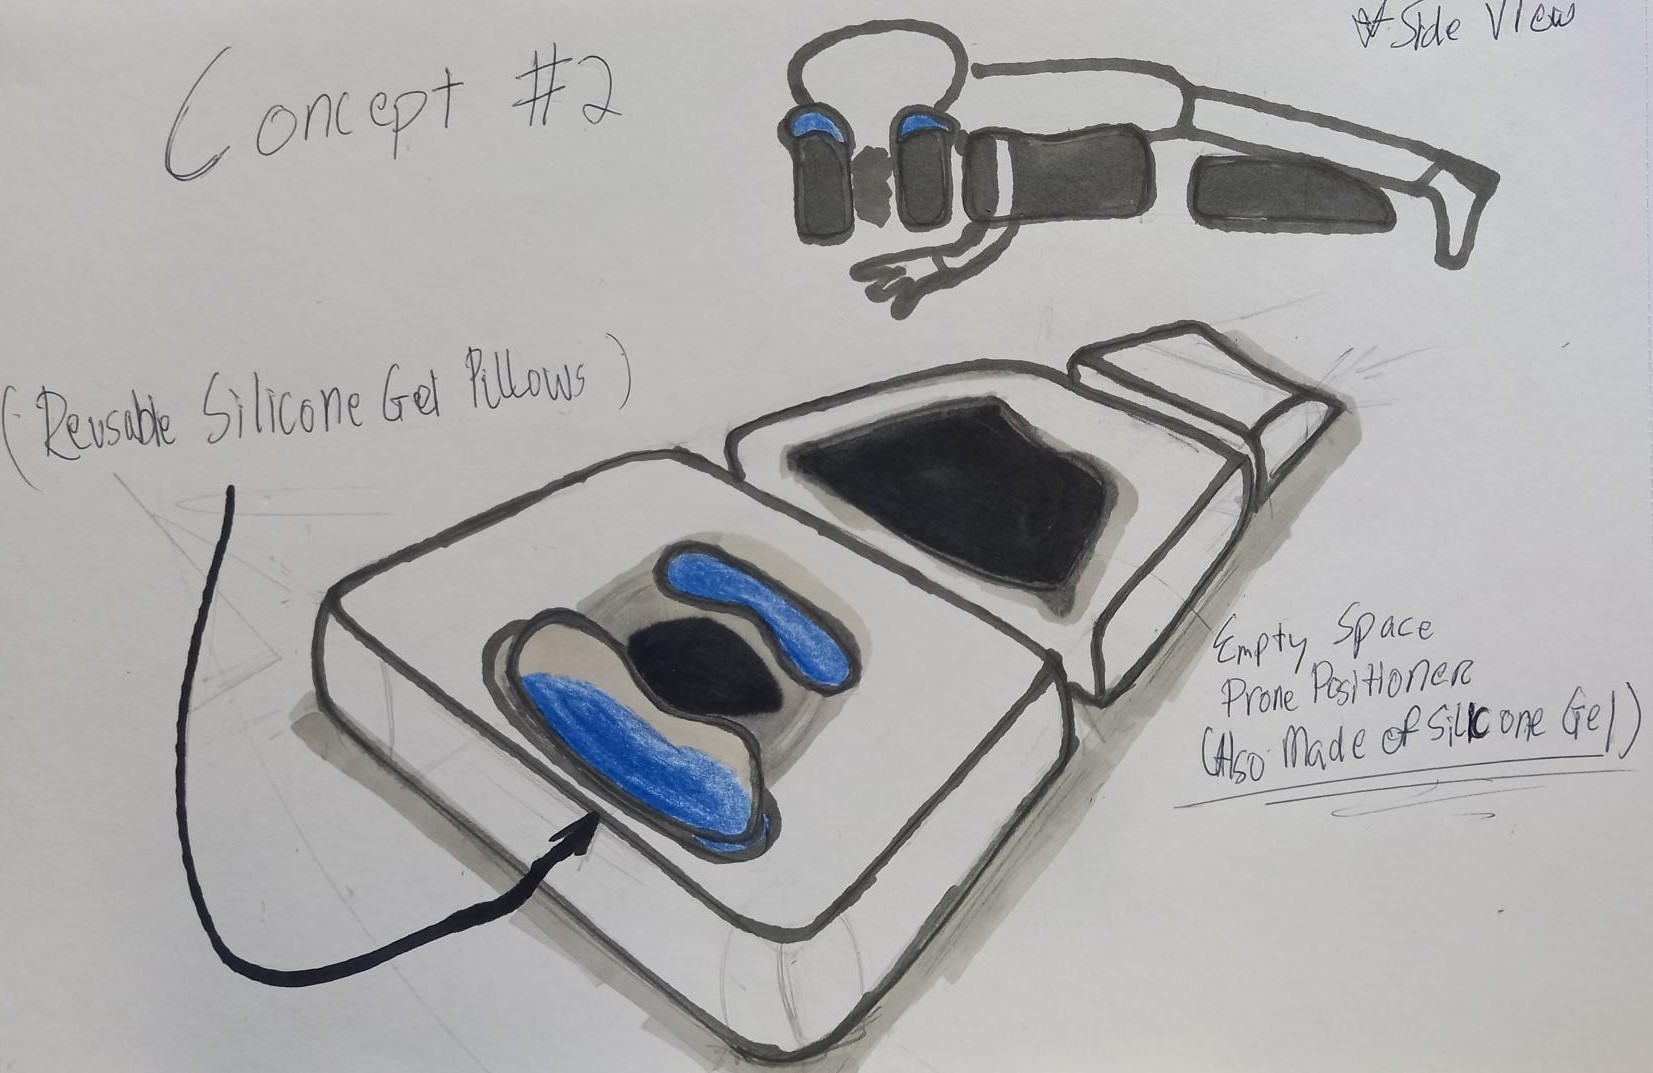 * Side View
Concept #2
(Reusable Silicone Gel Pillows)
Empty Space
Prone Positioner
(Also Made of Silicone Gel)